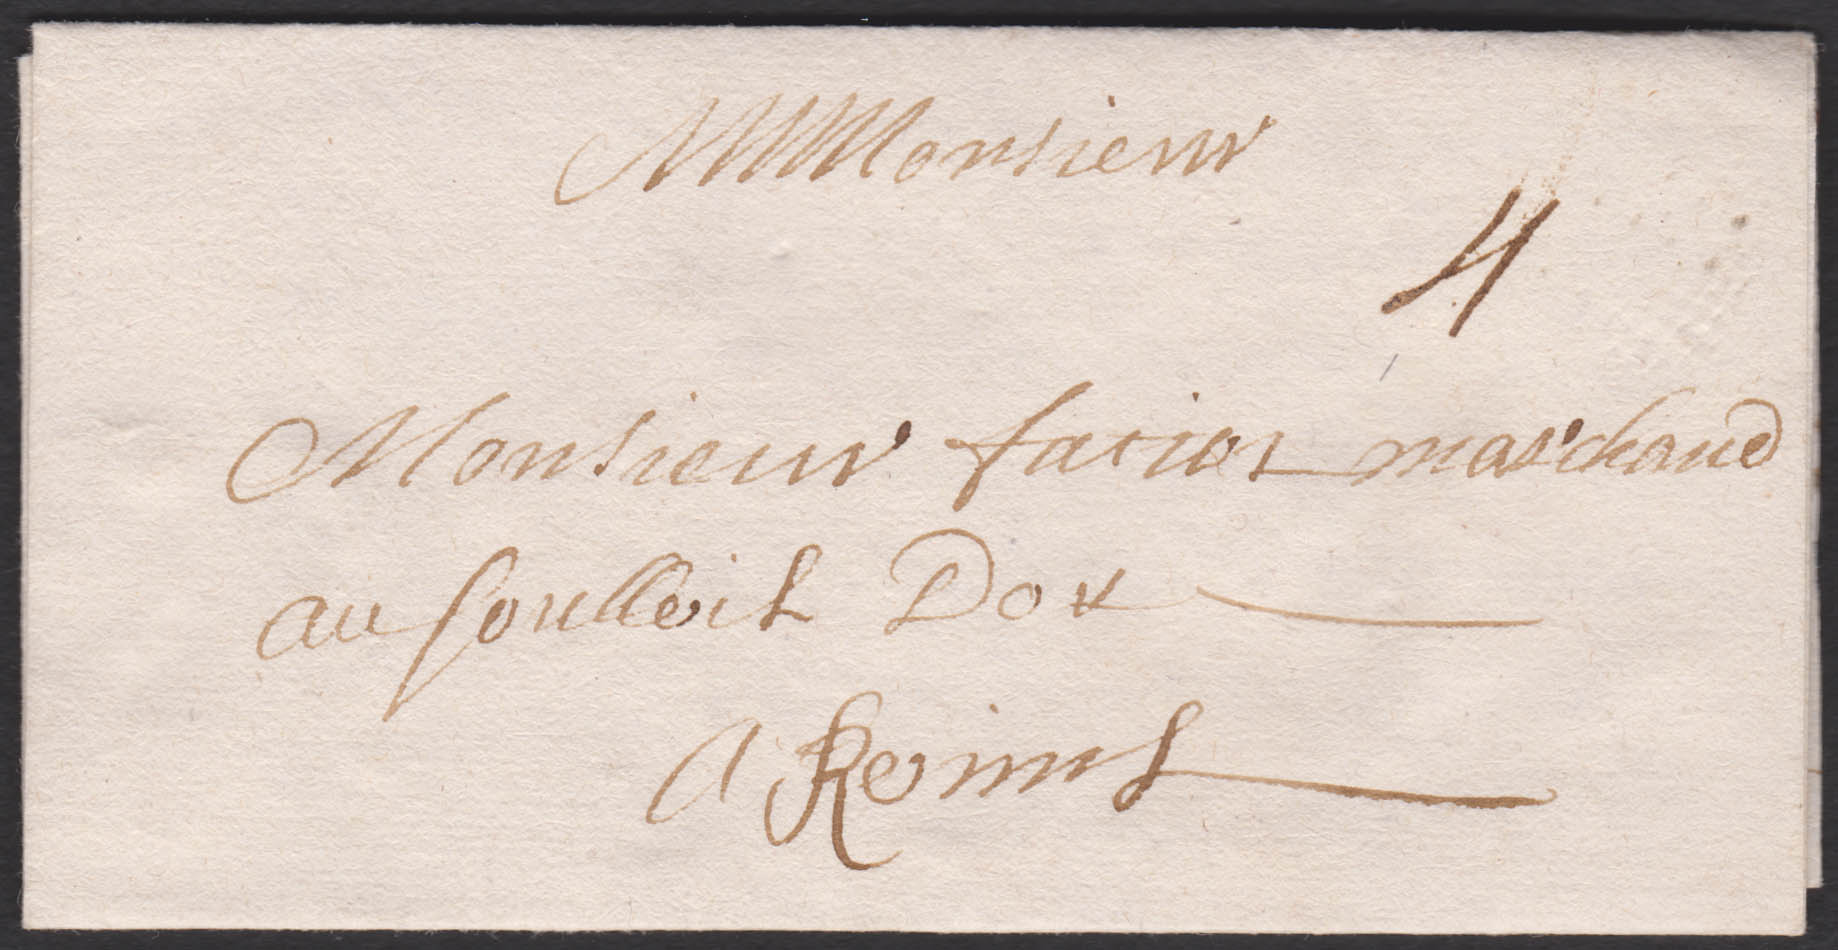 Monsieur
4
Monsieur faciot marchand
au soulleil Dor
A Reims